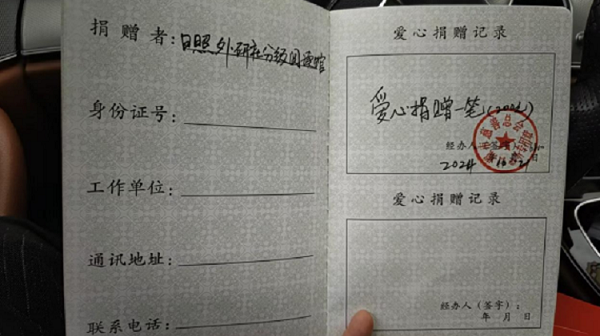 捐赠者：日照外研社分级阅读馆
身份证号：
工作单位：
通讯地址：
联系电话：
爱心捐赠记录
爱心捐赠一笔
经办人（签字）：
2024年 月 日
爱心捐赠记录
经办人（签字）：
年 月 日